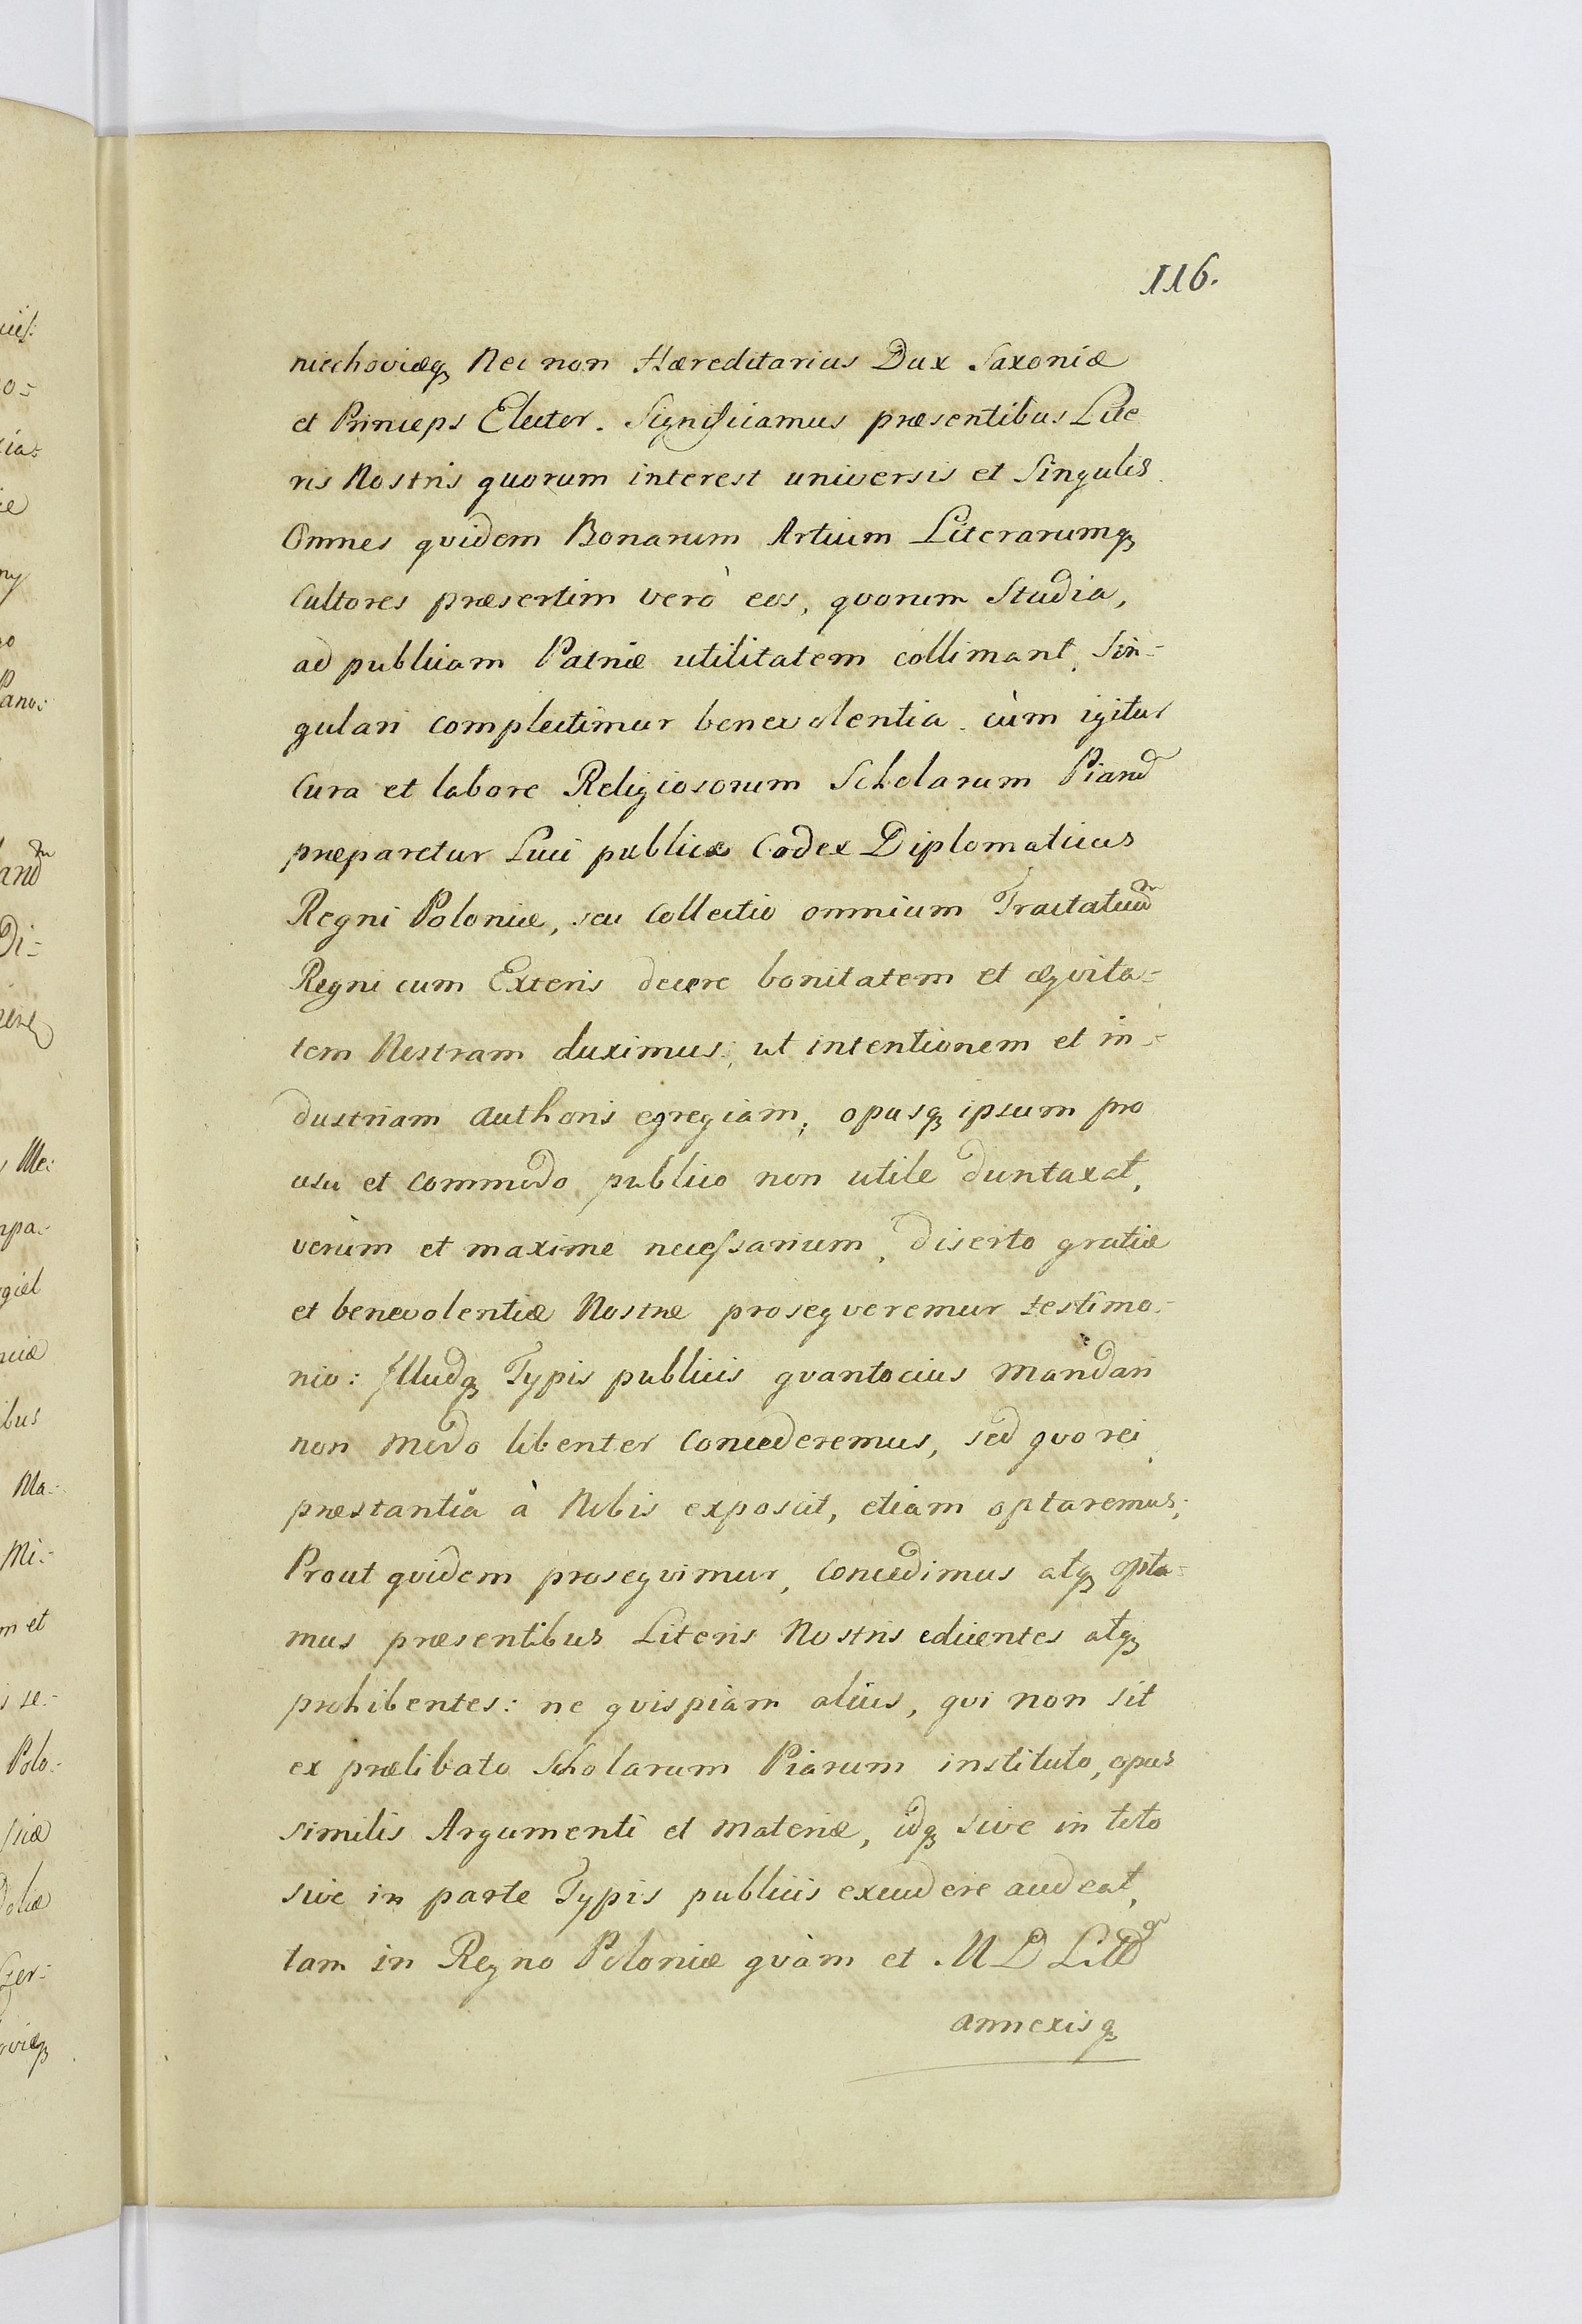 116.
niechoviæq3 Nec non Hæreditarius Dux Saxoniæ
et Princeps Elector. Significamus præsentibus Lite
ris Nostris quorum interest universis et Singulis.
Omnes qvidem Bonarum Artium Literarumq3
Cultores præsertim verò eos, qvorum Studia,
ad publicam Patriæ utilitatem collimant, Sin-
gulari complectimur benevolentia. cùm igitur
Cura et labore Religiosorum Scholarum Piarum
præparetur Luci publicæ Codex Diplomaticus
Regni Poloniæ, seu Collectio omnium Tractatuum
Regni cum Exteris decere bonitatem et æqvita-
tem Nostram duximus; ut intentionem et in-
dustriam Authoris egregiam, opusq3 ipsum pro
usu et commodo publico non utile duntaxat,
verùm et maxime necessarium, diserto gratiæ
et benevolentiæ Nostræ proseqveremur testimo-
nio: Illudq3 Typis publicis qvantocius mandari
non modo libenter Concederemus, sed qvo rei
præstantia à Nobis exposcit, etiam optaremus;
Prout qvidem proseqvimur, Concedimus atq3 opta-
mus præsentibus Literis Nostris edicentes atq3
prohibentes: ne qvispiam alius, qvi non sit
ex prælibato Scholarum Piarum instituto, opus
similis Argumenti et materiæ, idq3 sive in toto
sive in parte Typis publicis excudere audeat,
tam in Regno Poloniæ qvàm et M D Litt
annexisq3